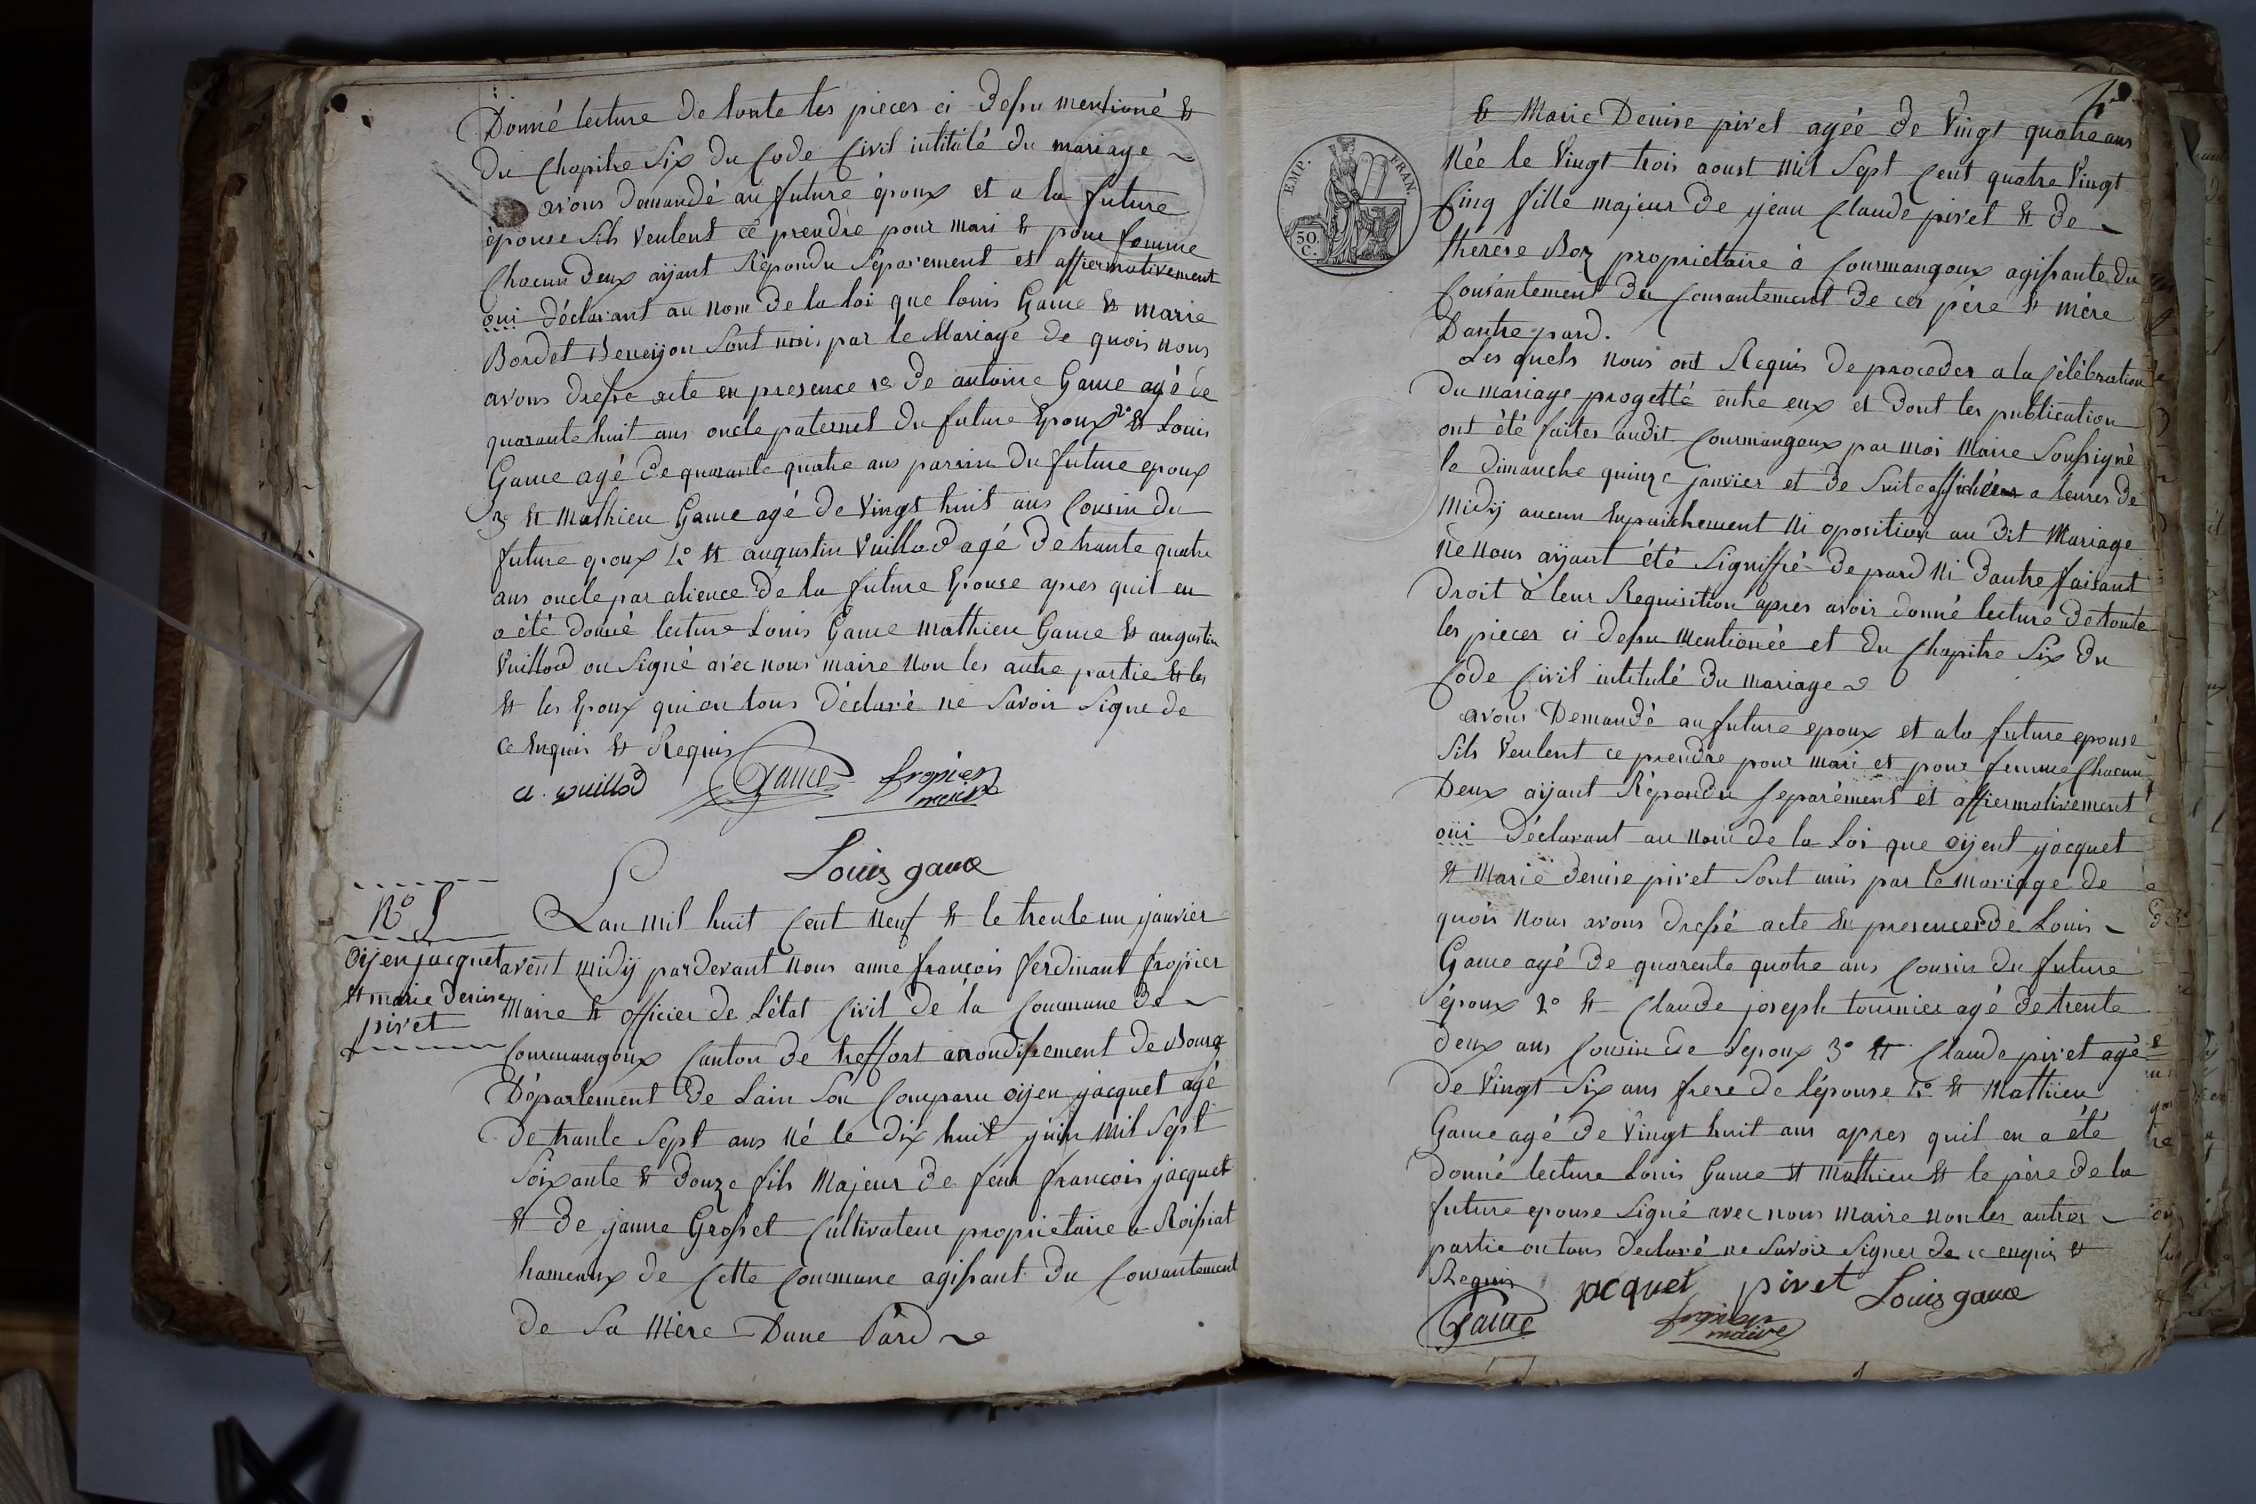 Donné lecture de toute les pieces ci dessu mentioné &
du Chapitre Six du Code Civil intitulé du mariage
avons demandé au future époux et a la future
épouse sils veulent ce prendre pour mari & pour femme
Chacun deux aÿant Répondu Séparement et affiermativement
oui déclarant au nom de la loi que louis Game & marie
Bordet Sont unis par le Mariage de quois nous
avons dressé acte en presence 1o De antoine Game agé de
quarante huit ans oncle paternel du future Epoux 2o & Louis
Game agé de quarante quatre ans parrain du future epoux
3o & Mathieu Game agé de Vingt huit ans Cousin du
future epoux 4o & augustin Vuillod agé de trante quatre
ans oncle par alience de la future Epouse apres quil en
a été donné lecture Louis Game Mathieu Game & augustin
Vuillod on Signé avec nous maire Non les autre partie & les
& les Epoux qui on tous déclaré ne Savoir Signe de
ce Enquis & Requis
a. vuillod Game fropier
maire
Louis game
No 5
Oijen jacquet
& marie denise
pivet
Lan mil huit Cent neuf & le trente un janvier
avent midÿ pardevant nous anne françois ferdinant fropier
Maire & officier de Létat Civil de la Commune de
Courmangoux Canton de treffort arondissement de Bourg
Département de Lain Son Comparu oijen jacquet agé
de trante Sept ans né le dix huit juin mil Sept
Soixante & douze fils Majeur de feux francois jacquet
& de janne Grosset Cultivateur proprietaire a Roissiat
hameaux de Cette Commune agissant du Consantement
de Sa Mère Dune Pard
& Marie Denise pivet agée de Vingt quatre ans
Née le Vingt trois aoust mil Sept Cent quatre Vingt
EMP. FRAN.
50.
C.
Cinq fille majeur de jean Claude pivet & de
therese Boz proprietaire à Courmangoux agissante du
Consantement du Consantement de ces père & mère
Dautre pard.
Les quels nous ont Requis de proceder a la Célébration
du mariage progetté entre eux et dont les publication
ont été faites audit Courmangoux par moi Maire Soussigné
le dimanche quinze janvier et de Suite affichées a leures de
Midÿ aucun Enpaichement ni oposition au dit Mariage
ne nous aÿant été Signiffié de pard ni dautre faisant
droit à leur Requisition apres avoir donné lecture de toute
les pieces ci dessu mentionée et du Chapitre Six du
Code Civil intitulé du mariage
avons Demandé au future epoux et a la future epouse
Sils Veulent ce prendre pour mari et pour femme Chacun
Deux aÿant Répondu Separément et affiermativement
oüi Déclarant au nom de la Loi que oijent jacquet
& Marie denise pivet Sont unis par le mariage de
quois Nous avons dressé acte en presences de Louis
Game agé de quarente quatre ans Cousin du future
époux 2o & Claude joseph tournier agé de trente
deux ans Cousin de Lepoux 3o & Claude pivet agé
de Vingt Six ans frere de lépouse 4o & Mathieu
Game agé de Vingt huit ans apres quil en a été
donné lecture Louis Game & Mathieu & le père de la
future epouse Signé avec nous Maire non les autres
partie on tous declaré ne Savoir Signer de ce enquis &
Requis
jacquet pivet Louis game
Game fropier
maire